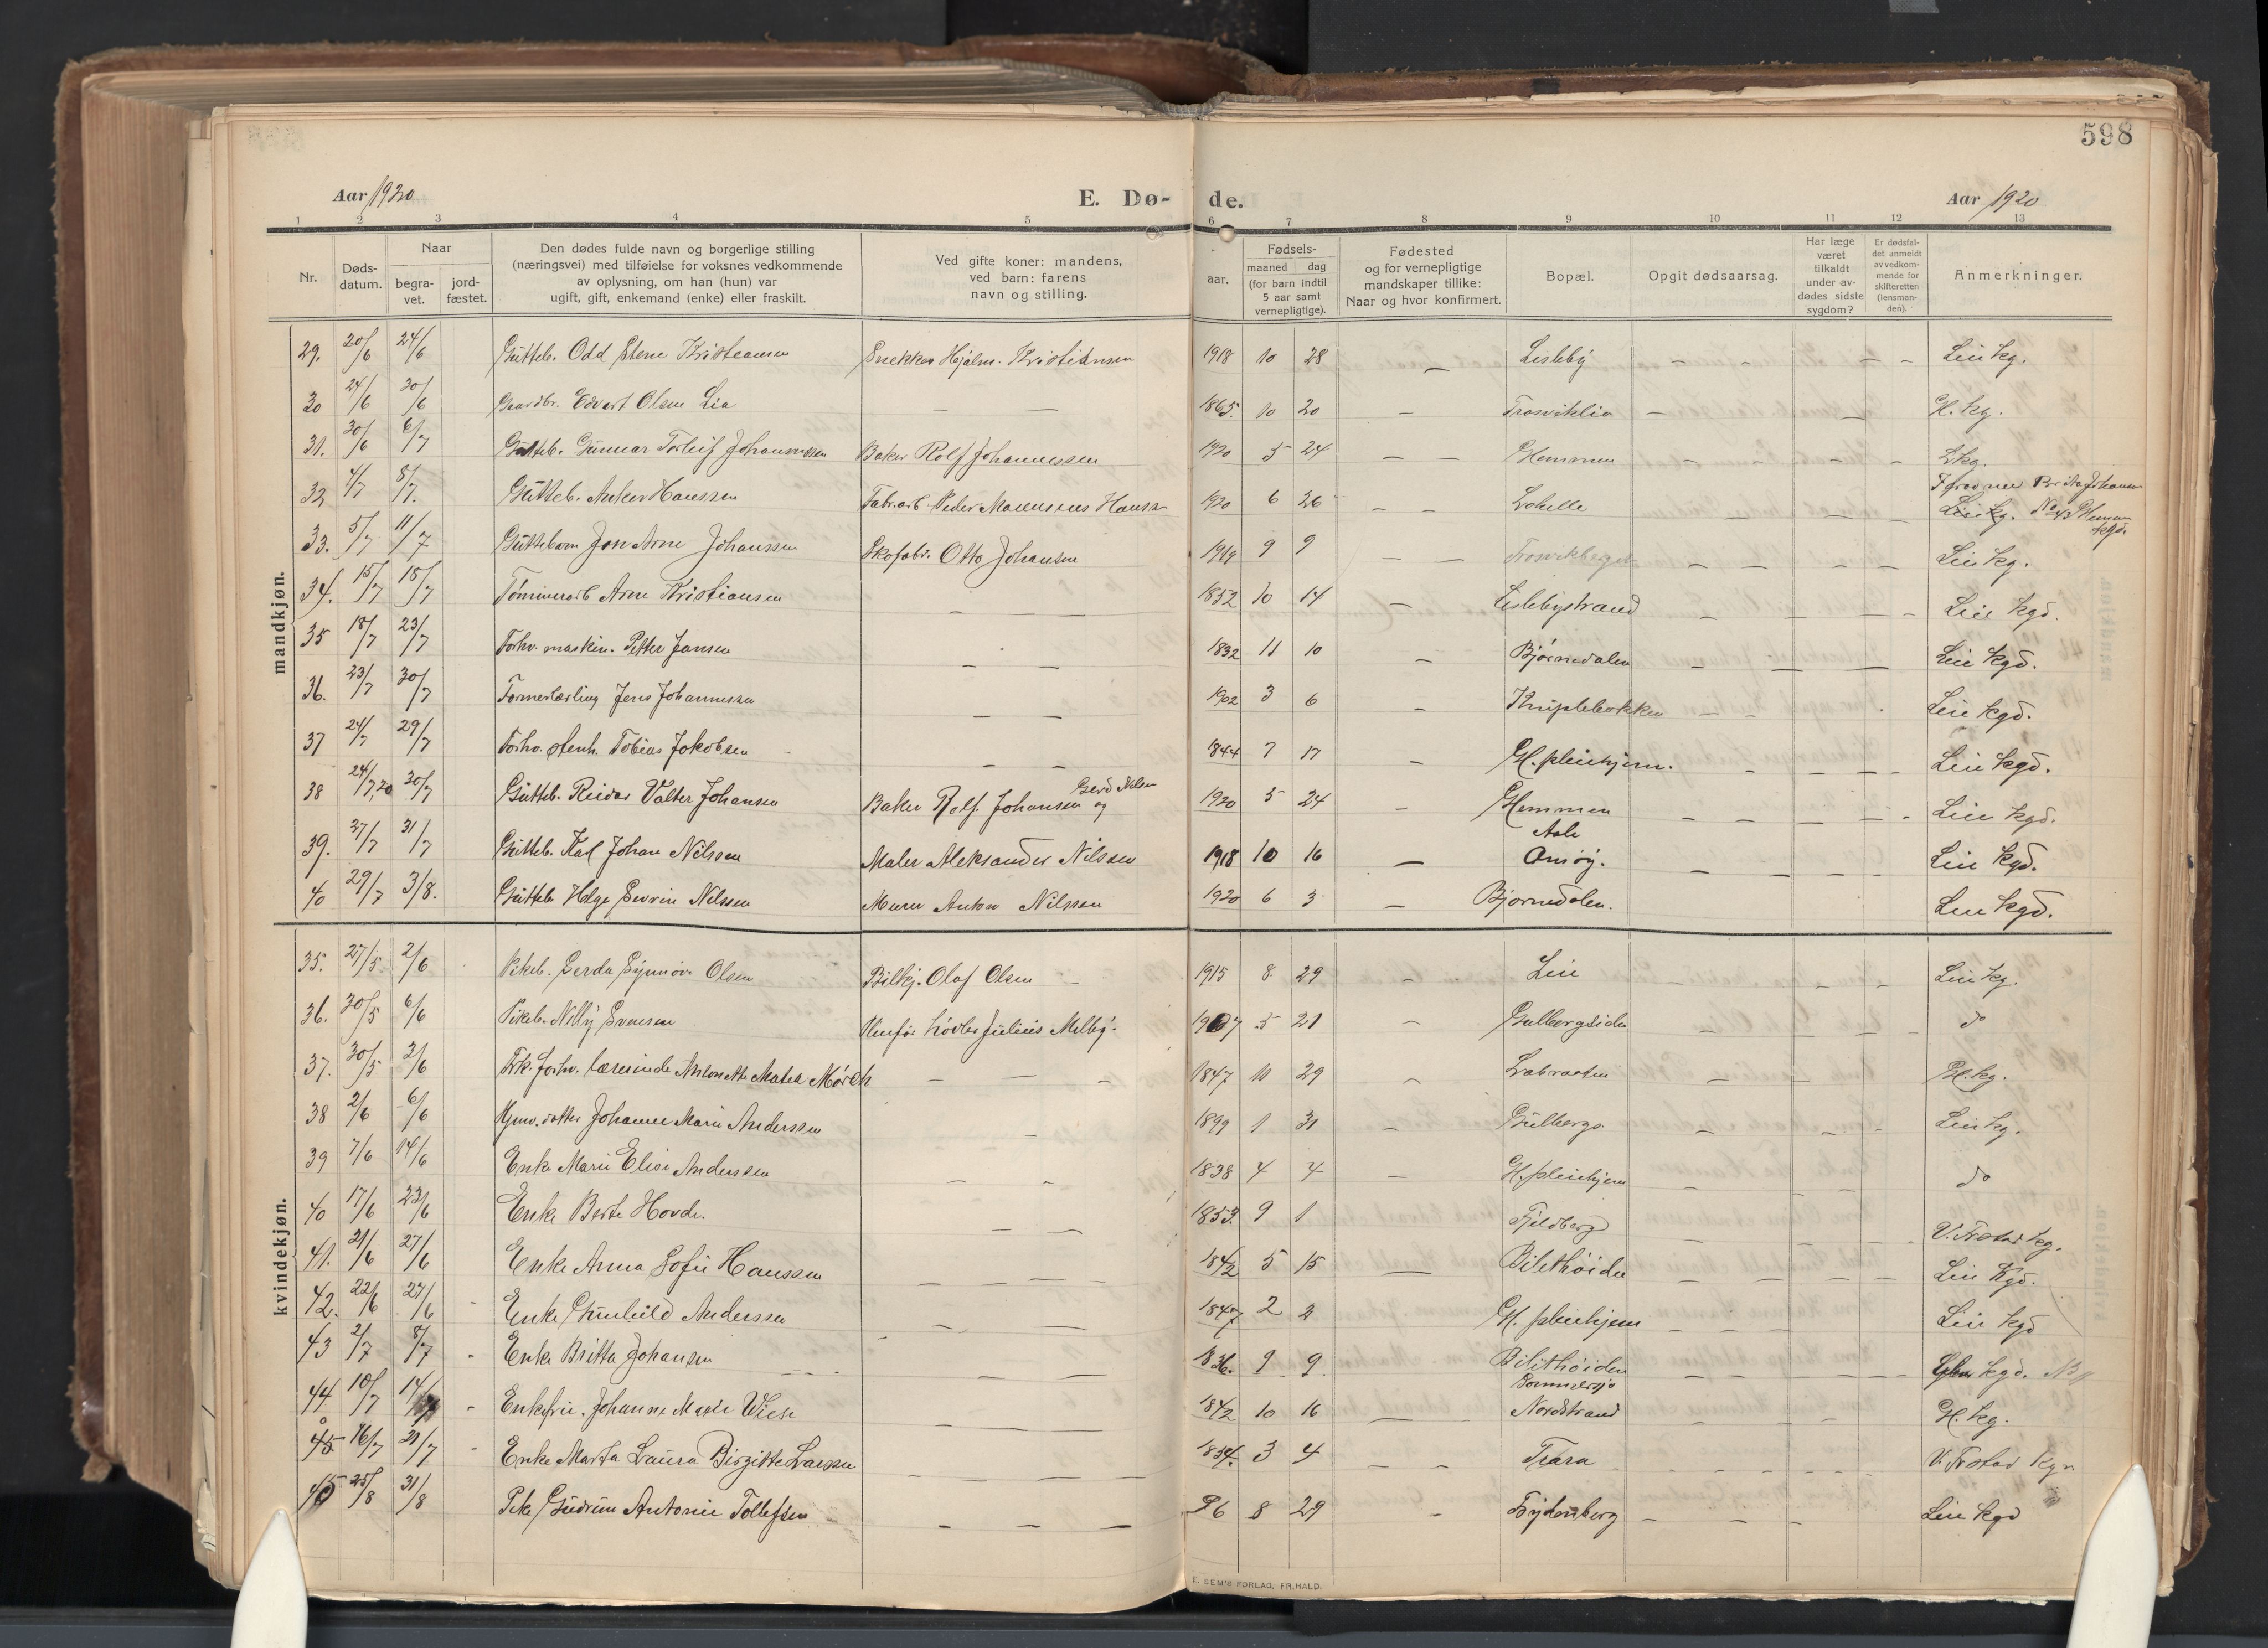 598
Aar 1920 E. Dø- de. Aar 1920
1 2 3 4 5 6 7 8 9 10 11 12 13
Nr. Døds-datum. Naar begra-vet. jord-fæstet. Den dødes fulde navn og borgerlige stilling (næringsvei) med tilføielse for voksnes vedkommende av oplysning, om han (hun) var ugift, gift, enkemand (enke) eller fraskilt. Ved gifte koner: mandens, ved barn: farens navn og stilling. aar. Fødsels- maaned dag (for barn indtil 5 aar samt vernepligtige). Fødested og for vernepligtige mandskaper tillike: Naar og hvor konfirmert. Bopæl. Opgit dødsaarsag. Har læge været tilkaldt under av-dødes sidste sygdom? Er dødsfal-det anmeldt av vedkom-mende for skifteretten (lensman-den). Anmerkninger.
mandkjøn.
29. 20/6 24/6 Gutteb. Odd Stene Kristiansen Snekker Hjalm. Kristiansen 1918 10 28 — Lisleby — — — — Leie kg.
30 24/6 30/6 Gaardbr. Edvart Olsen Lia — — 1865. 10 20 — Trosviklia — — G. kg.
31. 30/6 6/7 Gutteb. Gunnar Torleif Johannessen Baker Rolf Johannessen 1920 5 24 — — Glemmen — — — — L kg.
32 4/7 8/7. Gutteb. Anker Hanssen Fabr.arb. Peder Hanssen 1920 6 26 — — — — — Leie kg.
33. 5/7 11/7 Guttebarn Jon Arne Johanssen Skofabr. Otto Johansen 1919 9 9 — — Trosvikberget — — — — Leie kg.
34. 15/7 18/7 Tømmerarb Arne Kristiansen — — — 1852 10 14 — Lislebystrand — — — — Leie kgd.
35 18/7 23/7 Forhv. maskin. Petter Jansen — — 1832 11 10 — Bjørnedalen — — — Leie kgd.
36. 23/7 30/7 Formerlærling Jens Johannessen — — 1902 3 6 - — — Leie kgd.
37 24/7 29/7 Forhv. stenh. Tobias Jakobsen — — 1844 7 17 — Gl. pleiehjem. — — — — Leie kgd.
38 24/7 20 30/7 Gutteb. Reidar Valter Johansen Baker Rolf. Johansen og Gerd Nilsen 1920 5 24 — Glemmen — — — — Leie kgd.
39. 27/7 31/7 Gutteb. Karl Johan Nilssen Maler Aleksander Nilssen 1918 10 16 — Onsøy. — — — — Leie kgd.
40 29/7 3/8. Gutteb Helge Sevrin Nilssen Murer Anton Nilssen 1920 6 3 — Bjørnedalen. Leie kgd.
kvindekjøn.
35. 27/5 2/6 Pikeb. Gerda Synnøve Olsen Bilkj. Olaf Olsen 1915 8 29 — Leie — — — — Leie kg.
36. 30/5 6/6 Pikeb. Nelly Svensen Julius Melby. 1907 5 21 — Gulbergsiden do
37. 30/5 3/6 Frk. forhv. lærerinde Antonette Mathea Mørch — — — 1847 11 29 — Labraaten — — — Gl. kg.
38 2/6 6/6 Hjmv. datter Johanne Marie Anderssen — 1899 1 31 — Gulbergs. — — - Leie kg.
39 7/6 14/6 Enke Marie Elise Anderssen — - 1838 4 4 — Gl. pleiehjem — — — do
40 17/6 23/6 Enke Berte Hovde. — — 1853. 9 1 Fjeldberg — — — — V. Fr.stad kg.
41. 21/6 27/6 Enke Anna Sofie Hanssen — — — 1842 5 15 — Bilithøiden — — — — Leie Kgd.
42. 22/6 27/6 Enke Gunhild Anderssen — — 1847 2 2 Gl. pleiehjem — — — Leie kgd
43 2/7 8/7 Enke Britta Johansen — — 1836. 9 9. Bilithøiden — — — — — Glem kgd. NB
44 10/7 14/7 Enkefru. Johanne Marie Wiese — — 1842 10 16 — Nordstrand Gl. kg.
45 16/7 21/7 Enke Marta Laura Birgitte Larssen — — — — 1854. 3 4 — — Trara — — — — V. Fr.stad Kg.
25/8 31/8 Pike Gudrun Antonie Tollefsen — — — 8 29 - Frydenberg — — — Leie Kgd
E. SEM'S FORLAG, FR.HALD.